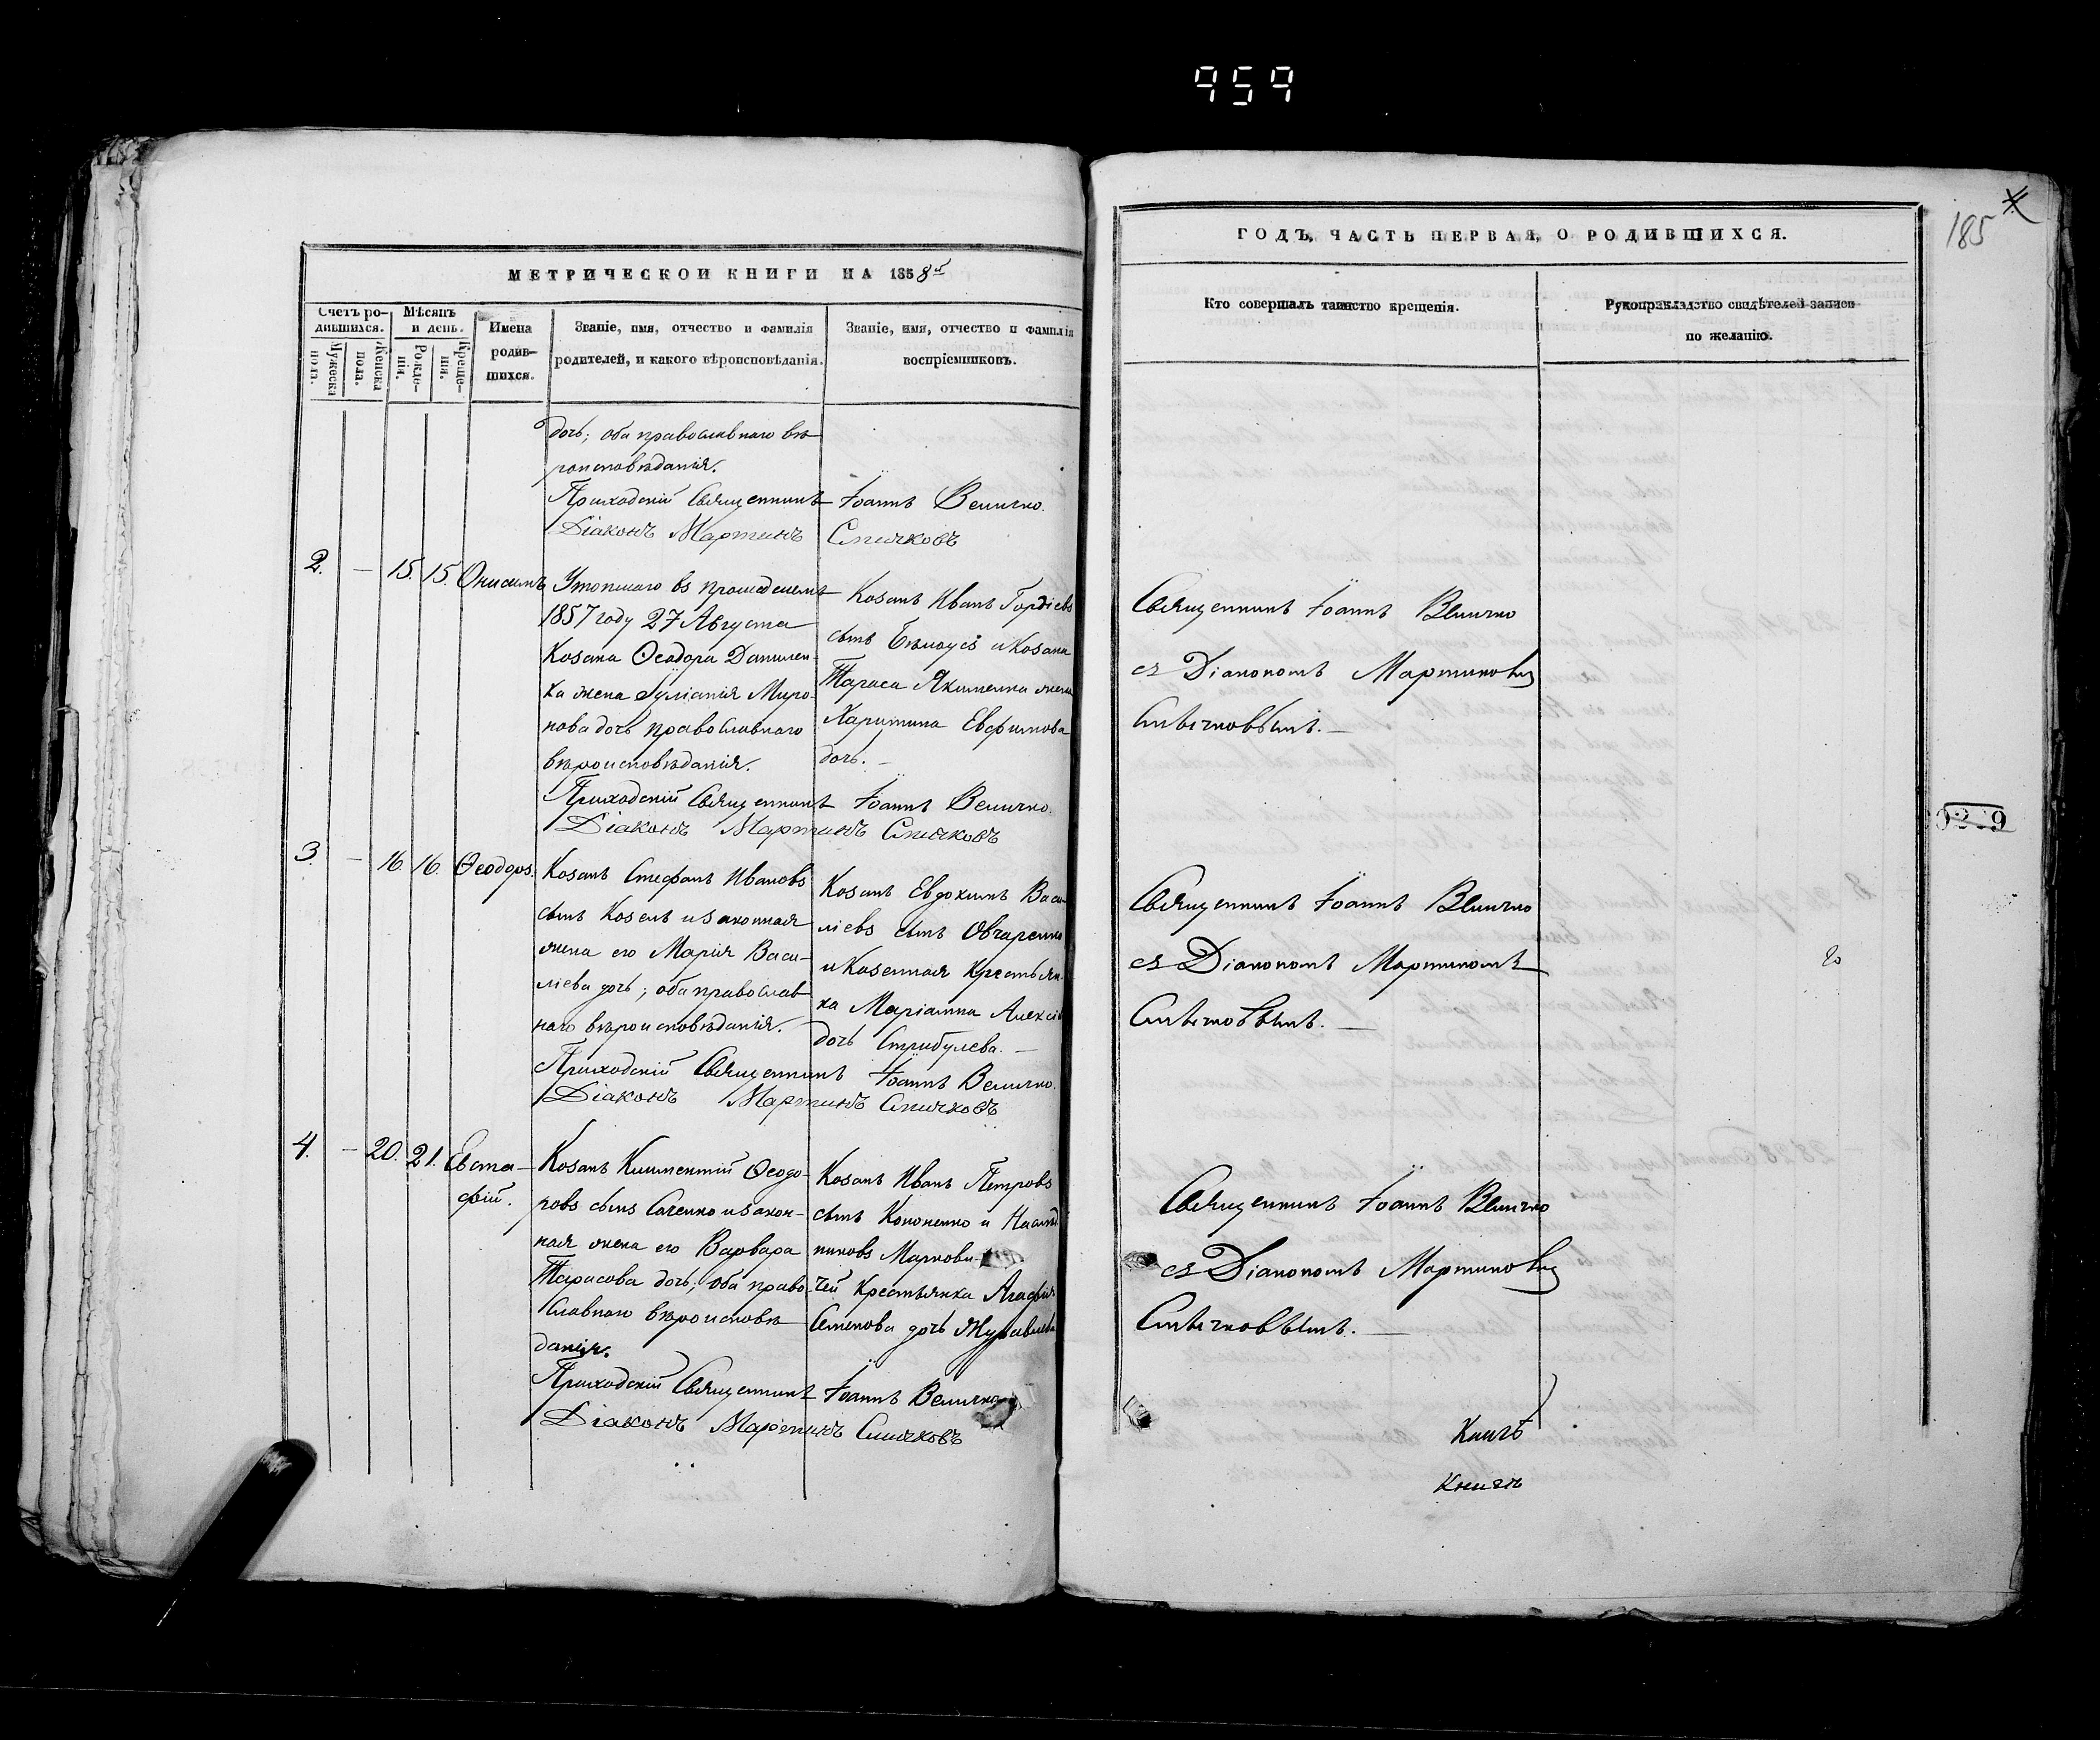 959
МЕТРИЧЕСКОЙ КНИГИ НА 1858й
Счетъ ро-
дившихся.
Мужеска
пола.
Женска
пола.
Мѣсяцъ
и день.
Рожде-
нія.
Креще-
нія.
Имена
родив-
шихся.
Званіе, имя, отчество и фамилія
родителей, и какого вѣроисповѣданія.
Званіе, имя, отчество и фамилія
воспріемниковъ.
дочь; оба православнаго вѣ-
роисповѣданія.
Приходскій Священникъ Іоаннъ Величко.
Діаконъ Мартинъ Спичковъ
2. – 15. 15. Онисимъ
Утопшаго въ прошедшемъ
1857 году 27 Августа
Козака Ѳеодора Данилен-
ка жена Іуліанія Миро-
нова дочь православнаго
вѣроисповѣданія.
Козакъ Иванъ Гордіевъ
сынъ Бѣлоусъ и Козака
Тараса Якименка жена
Харитина Евфимова
дочь. –
Приходскій Священникъ Іоаннъ Величко.
Діаконъ Мартинъ Спичковъ
3. – 16. 16. Ѳеодоръ.
Козакъ Стефанъ Ивановъ
сынъ Козелъ и законная
жена его Марія Васи-
ліева дочь; оба православ
наго вѣроисповѣданія.
Козакъ Евдокимъ Васи-
ліевъ сынъ Овчаренко
и Казенная Крестьян-
ка Маріанна Алексіе
дочь Стрибулева. –
Приходскій Священникъ Іоаннъ Величко.
Діаконъ Мартинъ Спичковъ
4. – 20. 21. Евста-
фій.
Козакъ Климентій Ѳеодо-
ровъ сынъ Саченко и закон-
ная жена его Варвара
Тарасова дочь; оба право-
славнаго вѣроисповѣ
данія.
Козакъ Иванъ Петровъ
сынъ Кононенко и Наслѣд
никовъ Маркови-
чей Крестьянка Агафія
Семенова дочь Журавлева
Приходскій Священникъ Іоаннъ Величко
Діаконъ Мартинъ Спичковъ
ГОДЪ, ЧАСТЬ ПЕРВАЯ, О РОДИВШИХСЯ.
185
Кто совершалъ таинство крещенія.
Рукоприкладство свидѣтелей записи
по желанію.
Священникъ Іоаннъ Величко
съ Діакономъ Мартиномъ
Спичковымъ. –
Священникъ Іоаннъ Величко
съ Діакономъ Мартиномъ
Спичковымъ. –
Священникъ Іоаннъ Величко
съ Діакономъ Мартиномъ
Спичковымъ. –
Книгѣ
Книгѣ